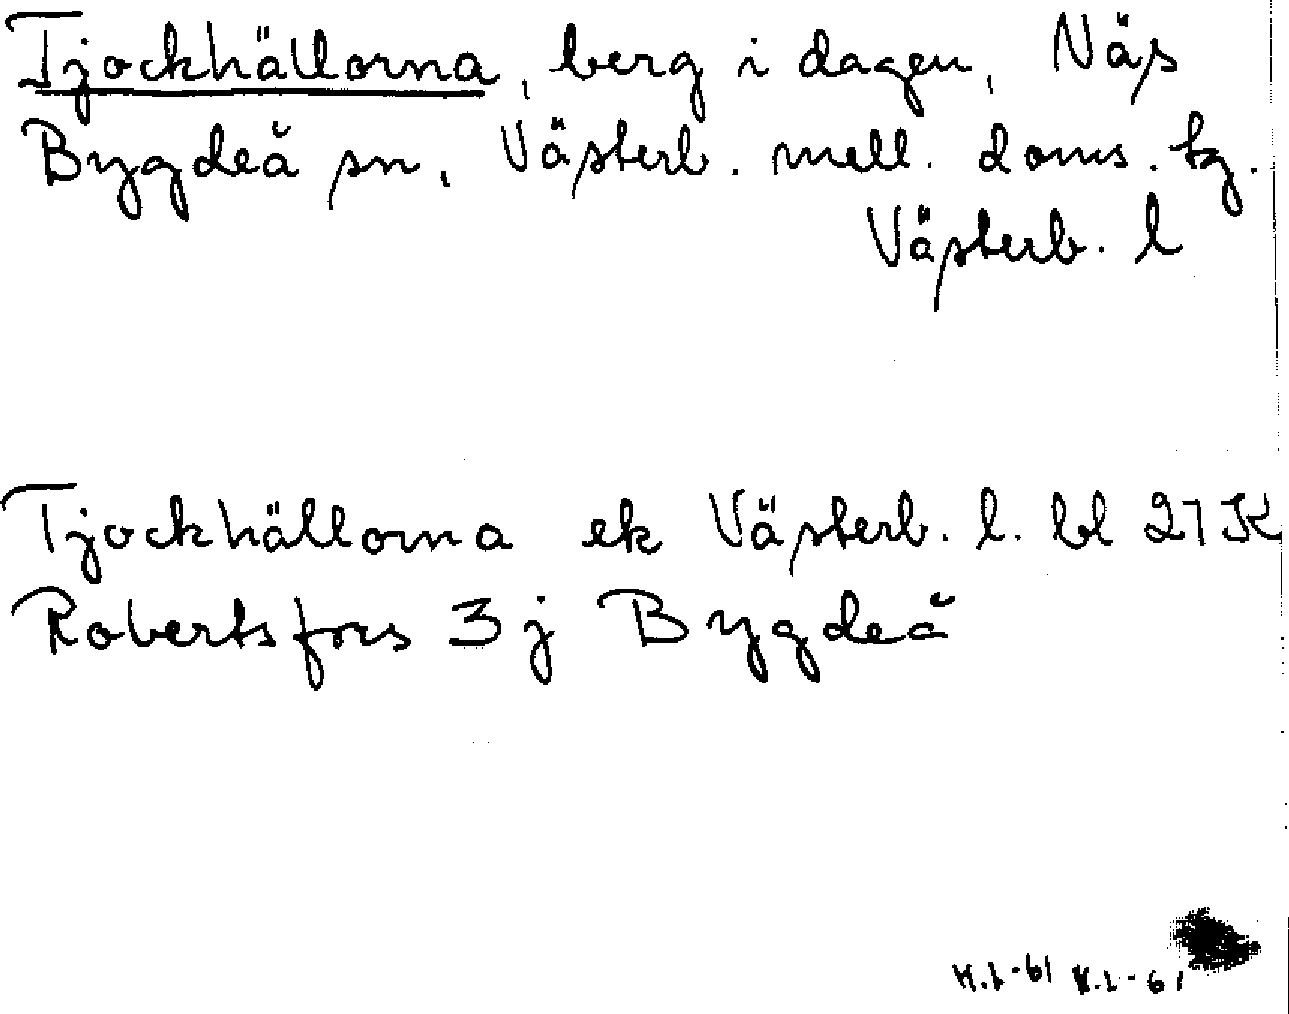 Tjockhällorna, berg i dagen, Näs
Bygdeå sn, Västerb. mell. doms. tg.
Västerb. l
Tjockhällorna ek Västerb. l. bl 27 K
Robertsfors 3 j Bygdeå